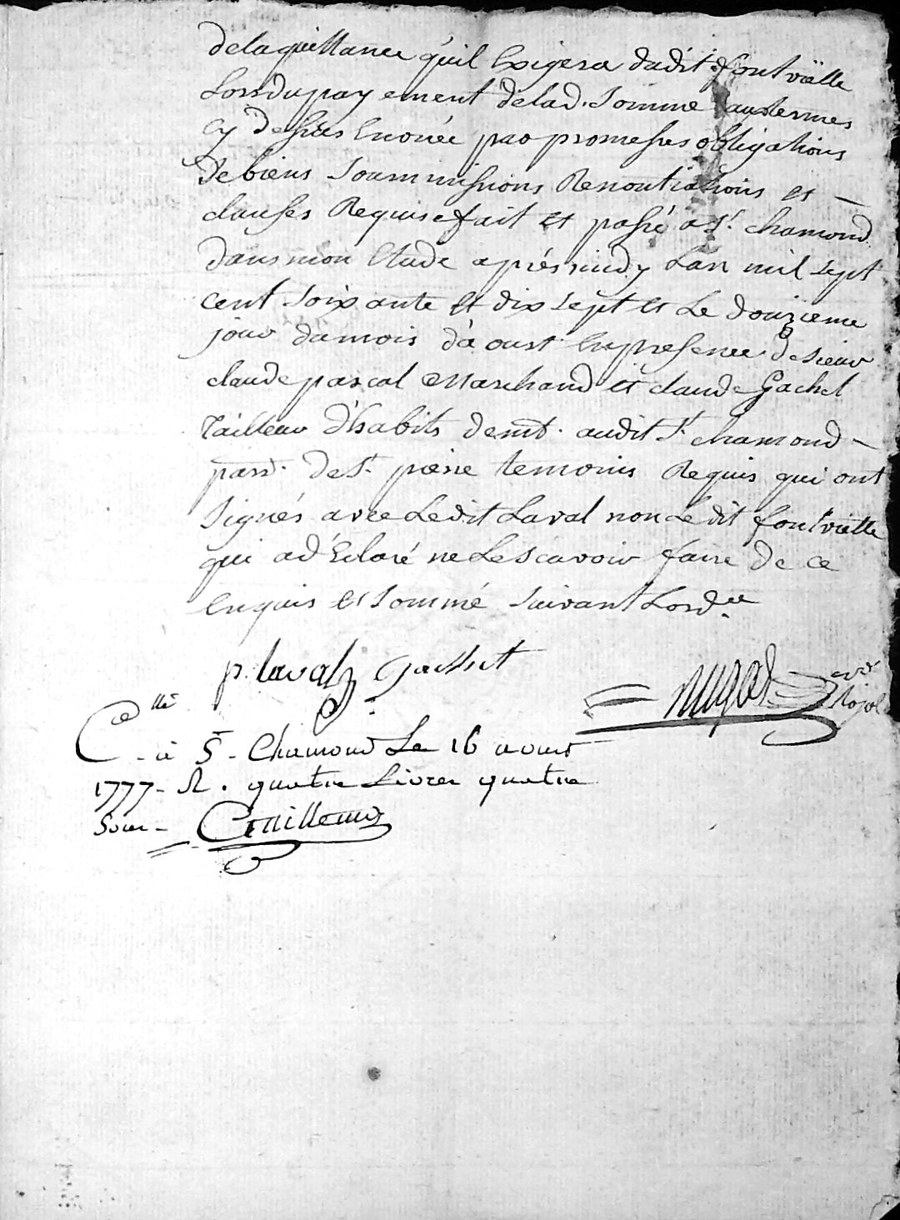 delaquittance qu'il Exigera dudit fontvielle
Lors du payement delad. Somme aux termes
Cy dessus Enoncée par promesses obligations
De biens Soummissions Renontiations et
clauses Requise fait et passé a St. chamond
dans mon Etude après midy Lan mil sept
cent soixante et dix sept et Le douzieme
jour du mois d'aoust En presence de Sieur
claude pascal Marchand et claude Gachet
Tailleur d'habits demt. audit St chamond
parr. de St. pierre temoins Requis qui ont
Signés avec Ledit Laval non Ledit fontvielle
qui a déClaré ne Lescavoir faire de ce
Enquis et Sommé suivant Lordce
p. laval Gachet
Cellé à St. Chamond Le 16 aoust
1777 - R. quatre Livres quatre
Sous